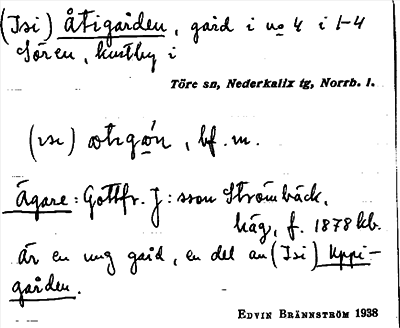 (Isi) Åtigården, gård i no 4 i 1-4
Sören, kustby i
Töre sn, Nederkalix tg, Norrb. l.
bf. m.
Ägare: Gottfr. J:sson Strömbäck,
häg, f. 1878 hb.
är en ung gård, en del av (Isi) Uppi-
gården.
EDVIN BRÄNNSTRÖM 1938